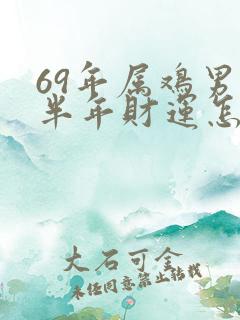 69年属鸡男
半年财运怎
大石可金
未经同意禁止转载